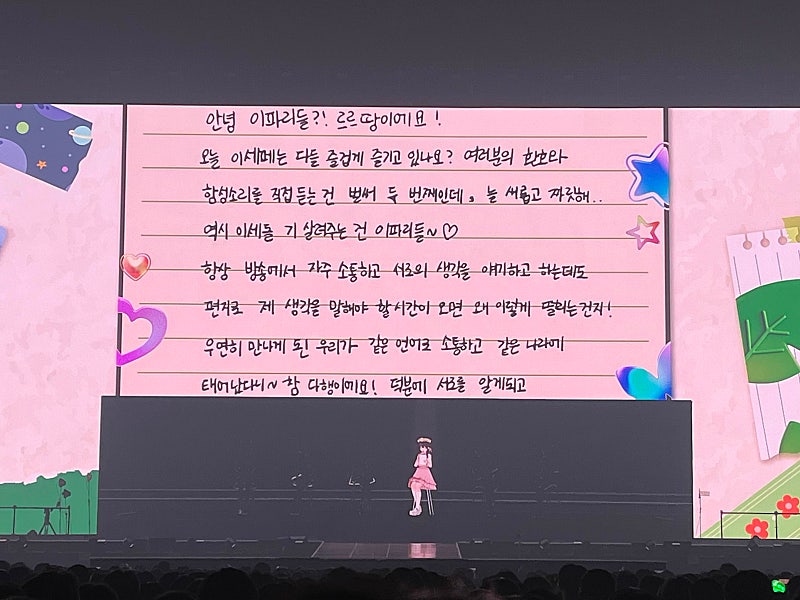 안녕 이파리들?! 르르땅이에요!
오늘 이세페는 다들 즐겁게 즐기고 있나요? 여러분의 환호와
함성소리를 직접 듣는건 벌써 두 번째인데, 늘 새롭고 짜릿해..
역시 이세돌 기 살려주는 건 이파리들~♡
항상 방송에서 자주 소통하고 서로의 생각을 얘기하고 하는데도
편지로 제 생각을 말해야 할 시간이 오면 왜 이렇게 떨리는건지!
우연히 만나게 된 우리가 같은 언어로 소통하고 같은 나라에
태어났다니~ 참 다행이에요! 덕분에 서로를 알게되고